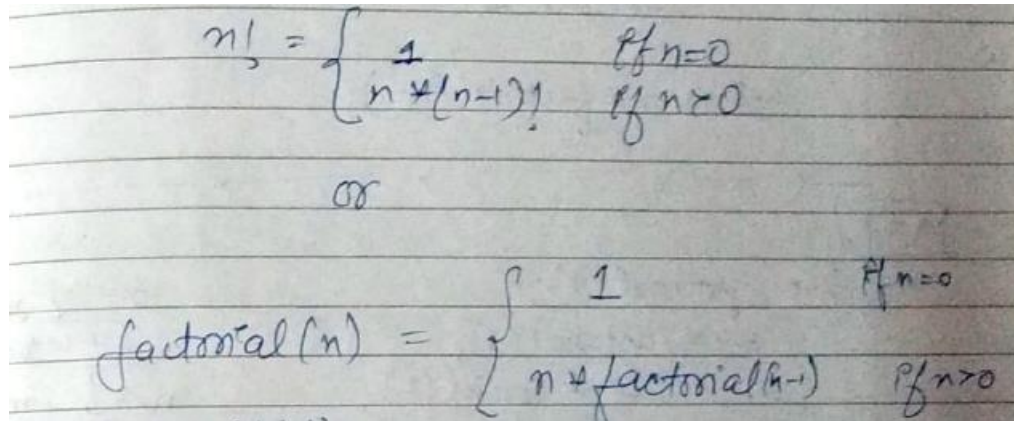 n! = { 1 if n=0
n *(n-1)! if n>0
or
factorial(n) = { 1 if n=0
n * factorial(n-1) if n>0